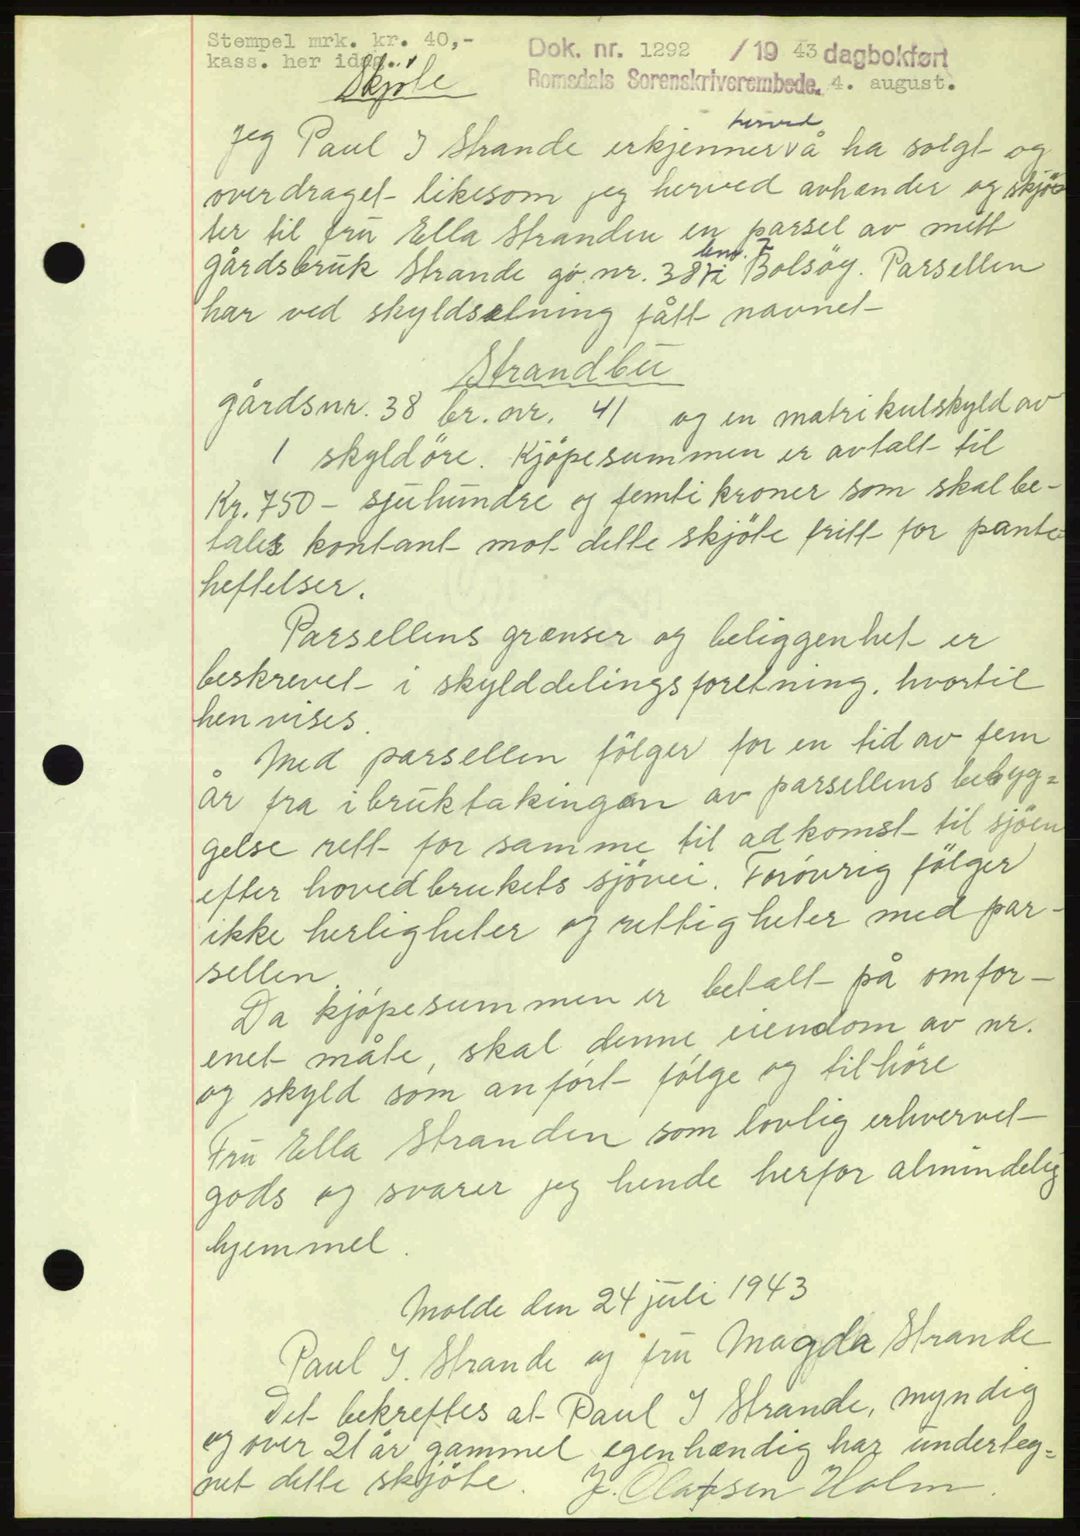 Stempel mrk. kr. 40,-
kass. her idag..
Dok. nr. 1292 /19 43 dagbokført
Romsdals Sorenskriverembede. 4. august.
Skjöte
Jeg Paul I Strande erkjenner herved å ha solgt og
overdraget likesom jeg herved avhænder og skjö-
ter til fru Ella Stranden en parsel av mitt
gårdsbruk Strande gå. nr. 38 bnr. 7 i Bolsöy. Parsellen
har ved skyldsetning fått navnet
Strandbu
gårdsnr. 38 br. nr. 41 og en matrikulskyld av
1 skyldöre. Kjöpesummen er avtalt til
Kr. 750 - sjuhundre og femti kroner som skal be-
tales kontant mot dette skjöte fritt for pante-
heftelser.
Parsellens grænser og beliggenhet er
beskrevet i skylddelingsforetning, hvortil
henvises.
Med parsellen fölger for en tid av fem
år fra ibruktakingen av parsellens bebyg=
gelse rett for samme til adkomst til sjöen
efter hovedbrukets sjövei. Forövrig fölger
ikke herligheter og rettigheter med par-
sellen.
Da kjöpesummen er betalt på omfor-
enet måte, skal denne eiendom av nr.
og skyld som anfört fölge og tilhöre
Fru Ella Stranden som lovlig erhvervet
gods og svarer jeg hende herfor almindelig
hjemmel.
Molde den 24 juli 1943
Paul I. Strande og fru Magda Strande
Det bekreftes at Paul I Strande, myndig
og over 21 år gammel egenhændig har underteg=
net dette skjöte. J. Olafsen Holm.